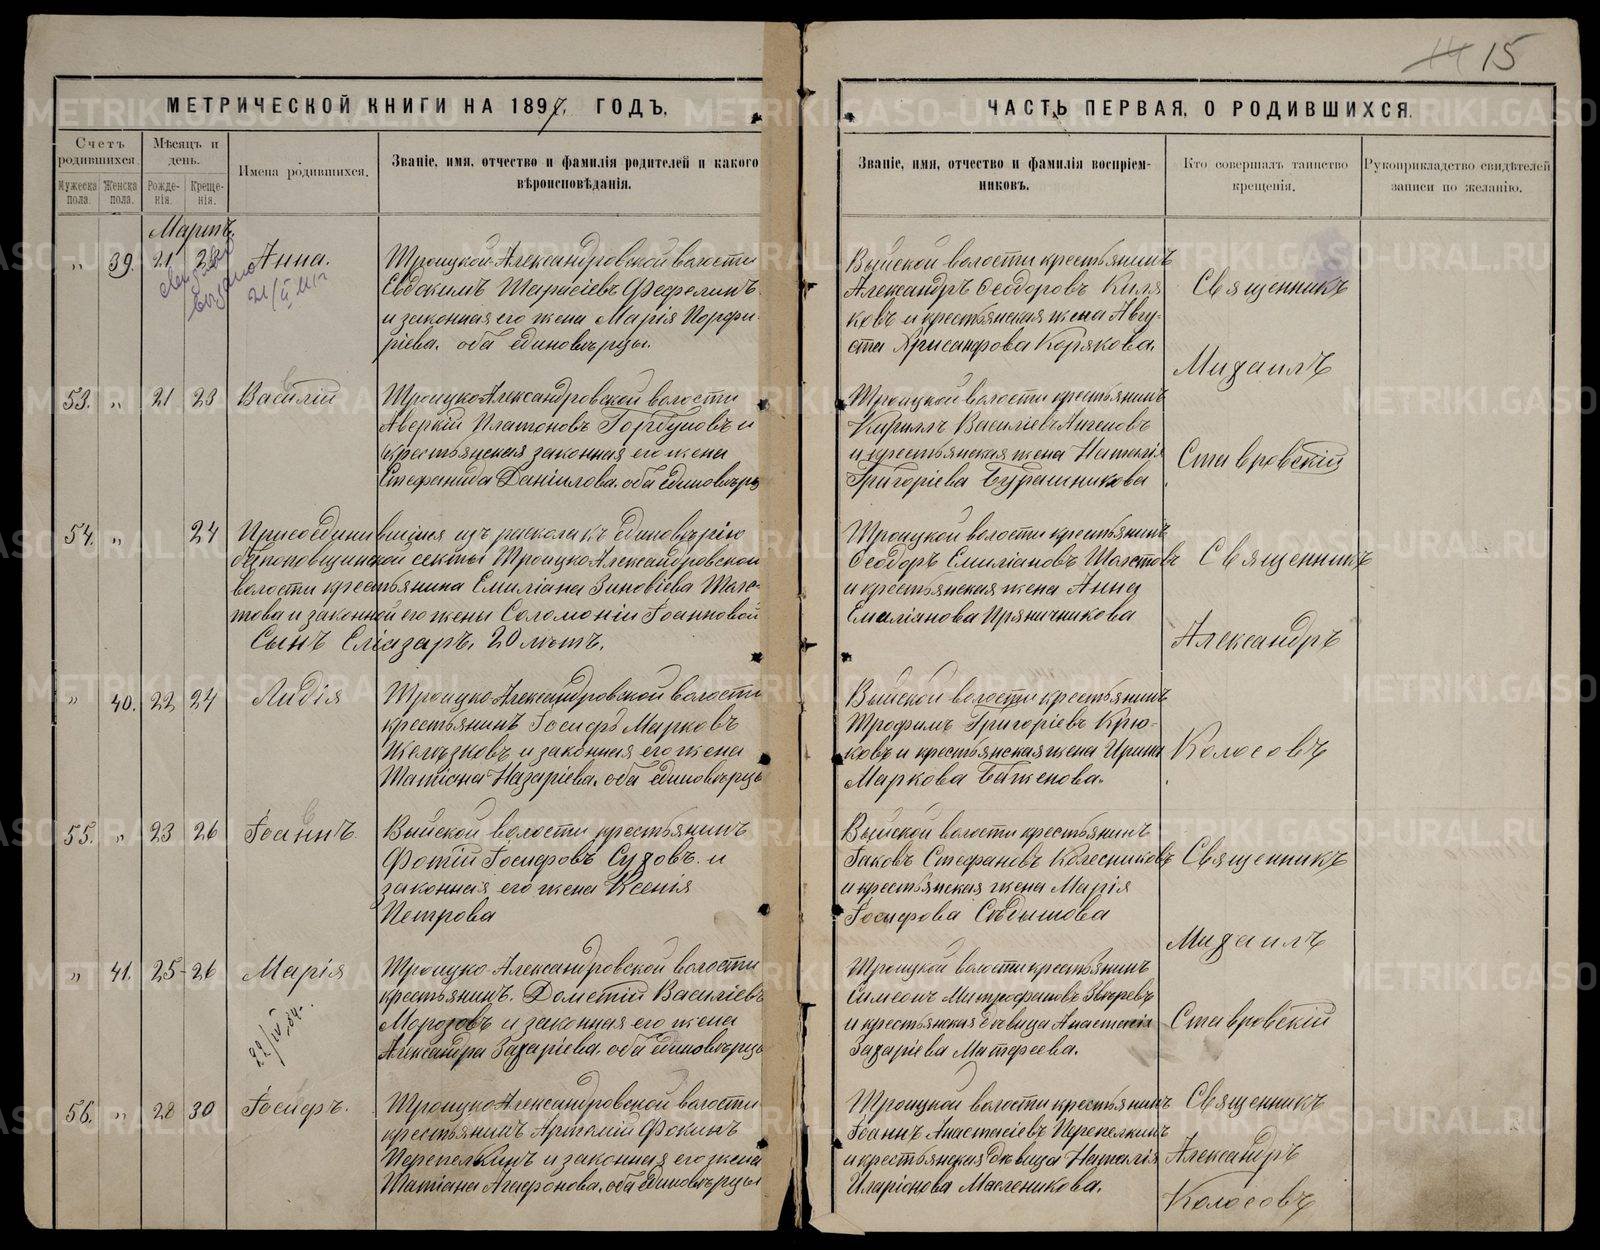 15
МЕТРИЧЕСКОЙ КНИГИ НА 1897 ГОДЪ,
Счетъ родившихся.
Мѣсяцъ и день.
Имена родившихся.
Званіе, имя, отчество и фамилія родителей и какого вѣроисповѣданія.
Мужеска пола.
Женска пола.
Рожде-нія.
Креще-нія.
Мартъ.
„ 39. 21 23 Анна.
Троицкой Александровской волости
Евдокимъ Тарасіевъ Фефелинъ
и законная его жена Марія Порфи-
ріева. оба единовѣрцы.
53. „ 21 23 Василій
Троицко Александровской волости
Аверкій Платоновъ Горбуновъ и
крестьянская законная его жена
Стефанида Даніилова. оба единовѣрц
54. „ 24 Присоединившійся изъ раскола къ единовѣрію
безпоповщинской секты Троицко Александровской
волости крестьянина Емиліана Зиновіева Толс-
това и законной его жены Соломоніи Іоанновой
Сынъ Еліазаръ, 20 лѣтъ.
„ 40. 22 24 Лидія
Троицко Александровской волости
крестьянинъ Іосифъ Марковъ
Желѣзковъ и законная его жена
Татіана Назаріева. оба единовѣрцы
55. „ 23 26 Іоаннъ
Выйской волости крестьянинъ
Фотій Іосифовъ Суховъ и
законная его жена Ксенія
Петрова
„ 41. 25 26 Марія
22/IV 54.
Троицко Александровской волости
крестьянинъ. Дометій Васильевъ
Морозовъ и законная его жена
Александра Захаріева. оба единовѣрцы
56. „ 28 30 Іосифъ.
Троицко Александровской волости
крестьянинъ Артемій Фокинъ
Перепелкинъ и законная его жена
Татіана Агафонова. оба единовѣрцы
ЧАСТЬ ПЕРВАЯ, О РОДИВШИХСЯ.
Званіе, имя, отчество и фамилія воспріем-
никовъ.
Кто совершалъ таинство
крещенія.
Рукоприкладство свидѣтелей
записи по желанію.
Выйской волости крестьянинъ
Александръ Феодоровъ Киля
ковъ и крестьянская жена Авгу-
ста Хрисанфова Корякова.
Троицкой волости крестьянинъ
Кириллъ Василіевъ
и крестьянская жена Наталія
Григоріева Бурашникова
Священникъ
Михаилъ
Ставровскій
Троицкой волости крестьянинъ
Феодоръ Емиліановъ Толстовъ
и крестьянская жена Анна
Емиліанова Пряничникова
Выйской волости крестьянинъ
Трофимъ Григоріевъ Крю-
ковъ и крестьянская жена Ирина
Маркова Баженова.
Священникъ
Александръ
Колосовъ
Выйской волости крестьянинъ
Іаковъ Стефановъ Колесниковъ
и крестьянская жена Марія
Іосифова
Троицкой волости крестьянинъ
Симеонъ Митрофановъ Звѣревъ
и крестьянская дѣвица Анастасія
Захаріева Матфеева.
Священникъ
Михаилъ
Ставровскій
Троицкой волости крестьянинъ
Іоаннъ Анастасіевъ Перепелкинъ
и крестьянская дѣвица Наталія
Иларіонова Масленикова.
Священникъ
Александръ
Колосовъ
METRIKI.GASO-URAL.RU